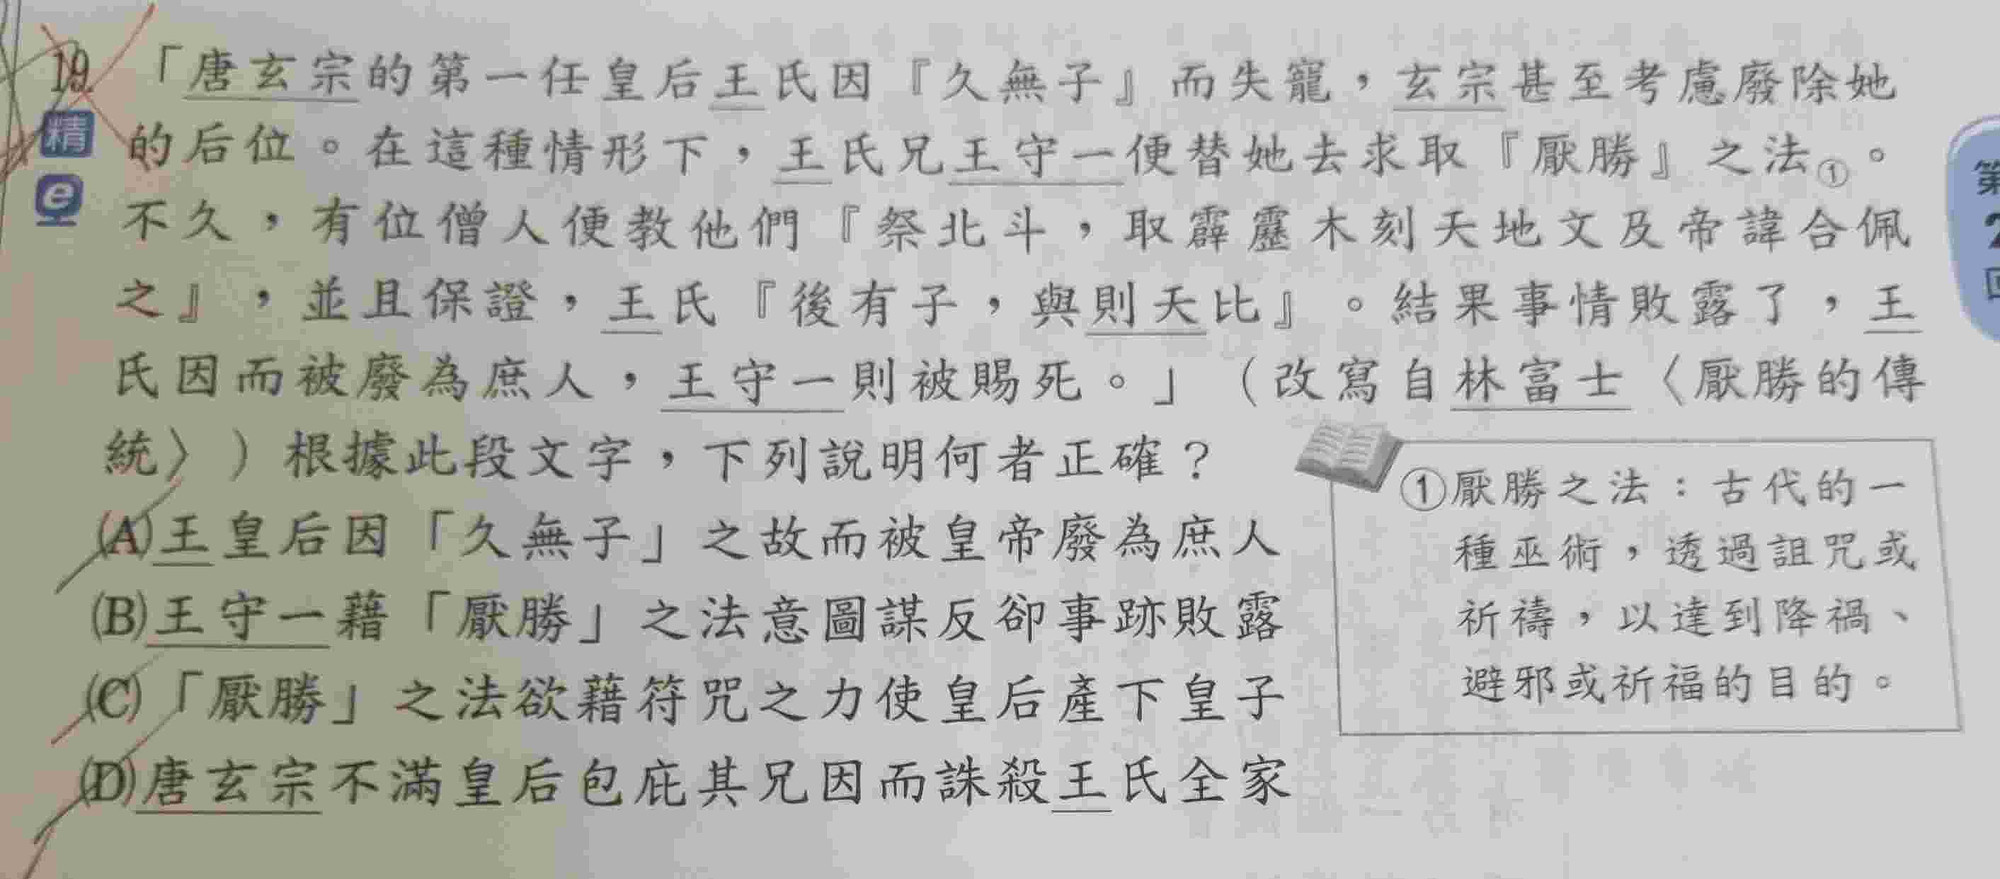 19. 「唐玄宗的第一任皇后王氏因『久無子』而失寵，玄宗甚至考慮廢除她
精 的后位。在這種情形下，王氏兄王守一便替她去求取『厭勝』之法①。
e 不久，有位僧人便教他們『祭北斗，取霹靂木刻天地文及帝諱合佩
之』，並且保證，王氏『後有子，與則天比』。結果事情敗露了，王
氏因而被廢為庶人，王守一則被賜死。」（改寫自林富士〈厭勝的傳
統〉）根據此段文字，下列說明何者正確？
(A)王皇后因「久無子」之故而被皇帝廢為庶人
(B)王守一藉「厭勝」之法意圖謀反卻事跡敗露
(C)「厭勝」之法欲藉符咒之力使皇后產下皇子
(D)唐玄宗不滿皇后包庇其兄因而誅殺王氏全家
①厭勝之法：古代的一
種巫術，透過詛咒或
祈禱，以達到降禍、
避邪或祈福的目的。
第
2